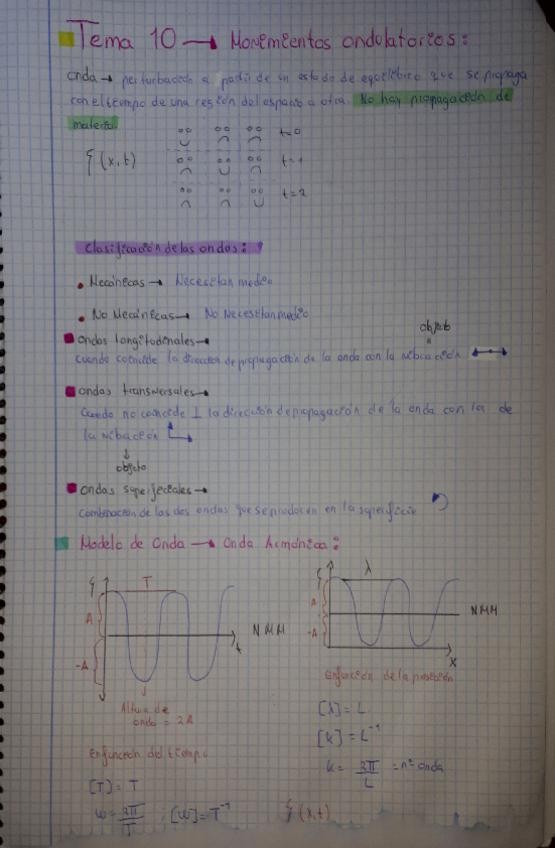 Tema 10 → Movimientos ondulatorios:
onda → perturbación a partir de un estado de equilibrio que se propaga
con el tiempo de una región del espacio a otra. No hay propagación de
materia.
t=0
ξ(x,t) t=1
t=2
Clasificación de las ondas:
• Mecánicas → Necesitan medio
• No Mecánicas → No Necesitan medio
ondas longitudinales →
objeto
cuando coincide la dirección de propagación de la onda con la vibración
ondas transversales →
Cuando no coincide ⊥ la dirección de propagación de la onda con la de
la vibración
↓
objeto
ondas superficiales →
Combinación de las dos ondas que se producen en la superficie
Modelo de Onda → Onda Armónica:
ξ T
A
NMM
t
-A
Altura de
onda = 2A
En función del tiempo
[T] = T
ω = 2π/T ; [ω] = T⁻¹
ξ λ
A
NMM
-A
x
En función de la posición
[λ] = L
[k] = L⁻¹
k = 2π/L = nº onda
ξ(x,t)